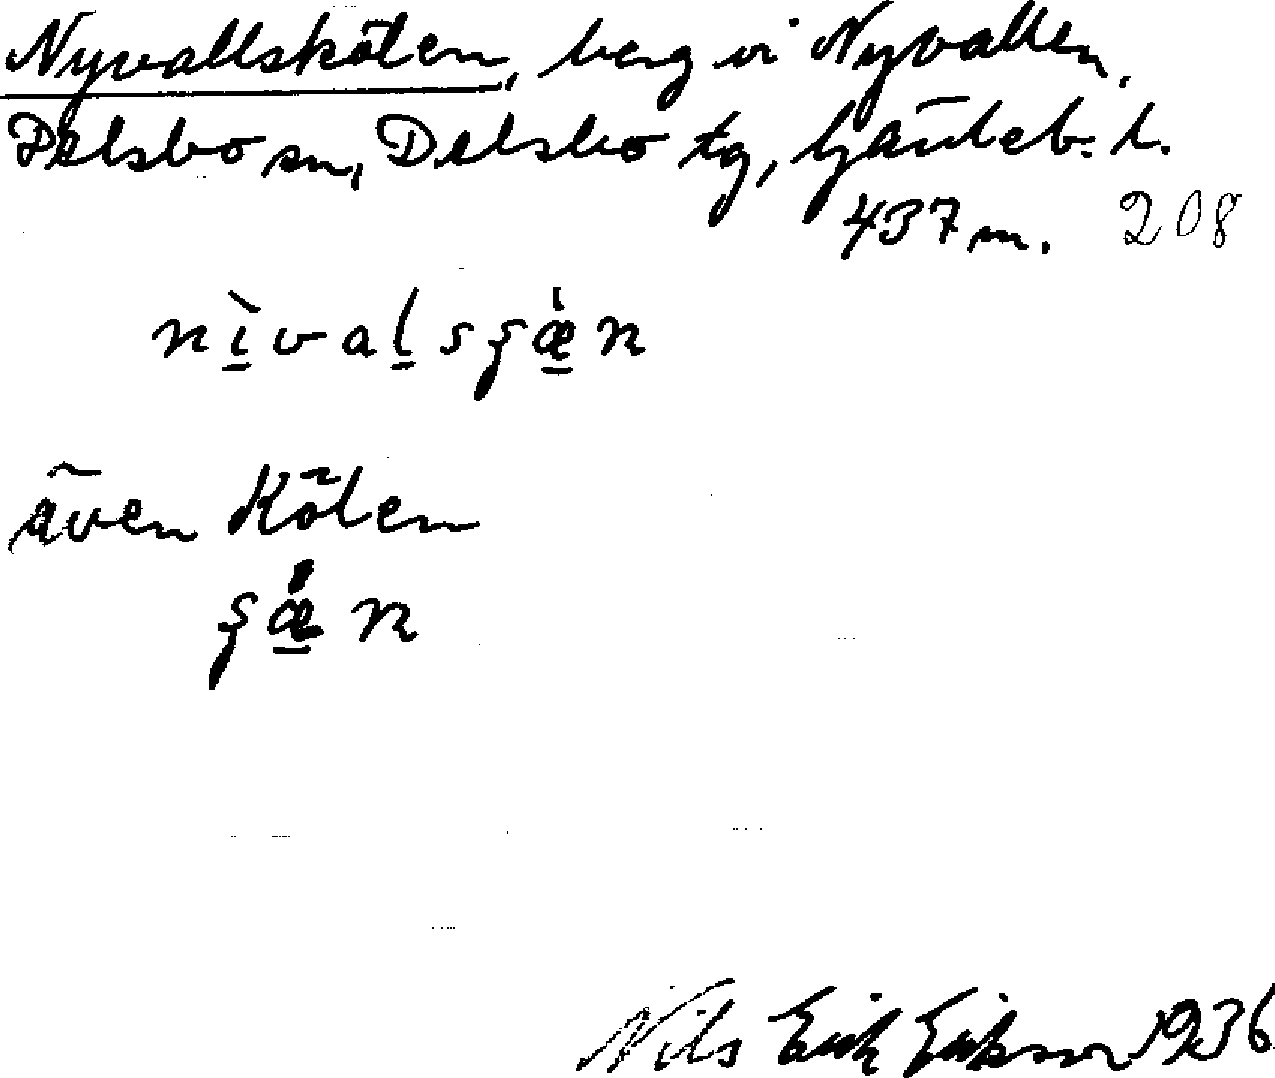 Nyvallskölen, berg vi Nyvallen,
Delsbo sn, Delsbo tg, Gävleb. l.
437 m. 208
även Kölen
Nils Erik Erikson 1936